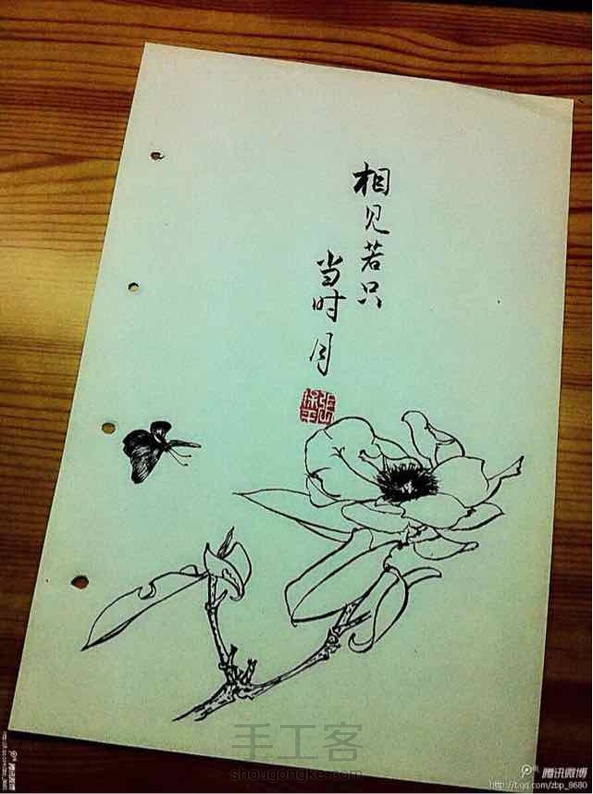 相见若只
当时月
手工客
shougongke.com
腾讯微博
http://t.qq.com/zbp_8680